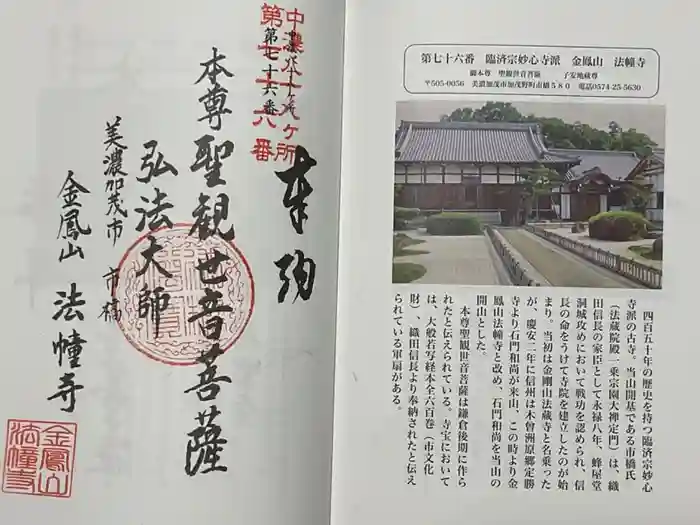 第七十六番　臨済宗妙心寺派　金鳳山　法幢寺
御本尊　聖観世音菩薩　子安地蔵尊
〒505-0056　美濃加茂市加茂野町市橋580　電話0574-25-5630
四百五十年の歴史を持つ臨済宗妙心
寺派の古寺。当山開基である市橋氏
（法蔵院殿一乗宗園大禅定門）は、織
田信長の家臣として永禄八年、蜂屋堂
洞城攻めにおいて戦功を認められ、信
長の命をうけて寺院を建立したのが始
まり。当初は金剛山法蔵寺と名乗った
が、慶安二年に信州は木曽洲原郷定勝
寺より石門和尚が来山、この時より金
鳳山法幢寺と改め、石門和尚を当山の
開山とした。
本尊聖観世音菩薩は鎌倉後期に作ら
れたと伝えられている。寺宝において
は、大般若写経本全六百巻（市文化
財）、織田信長より奉納されたと伝え
られている軍扇がある。
奉拝
中濃八十八ヶ所
第七十六番
本尊聖観世音菩薩
弘法大師
美濃加茂市　市橋
金鳳山　法幢寺
金鳳山
法幢寺